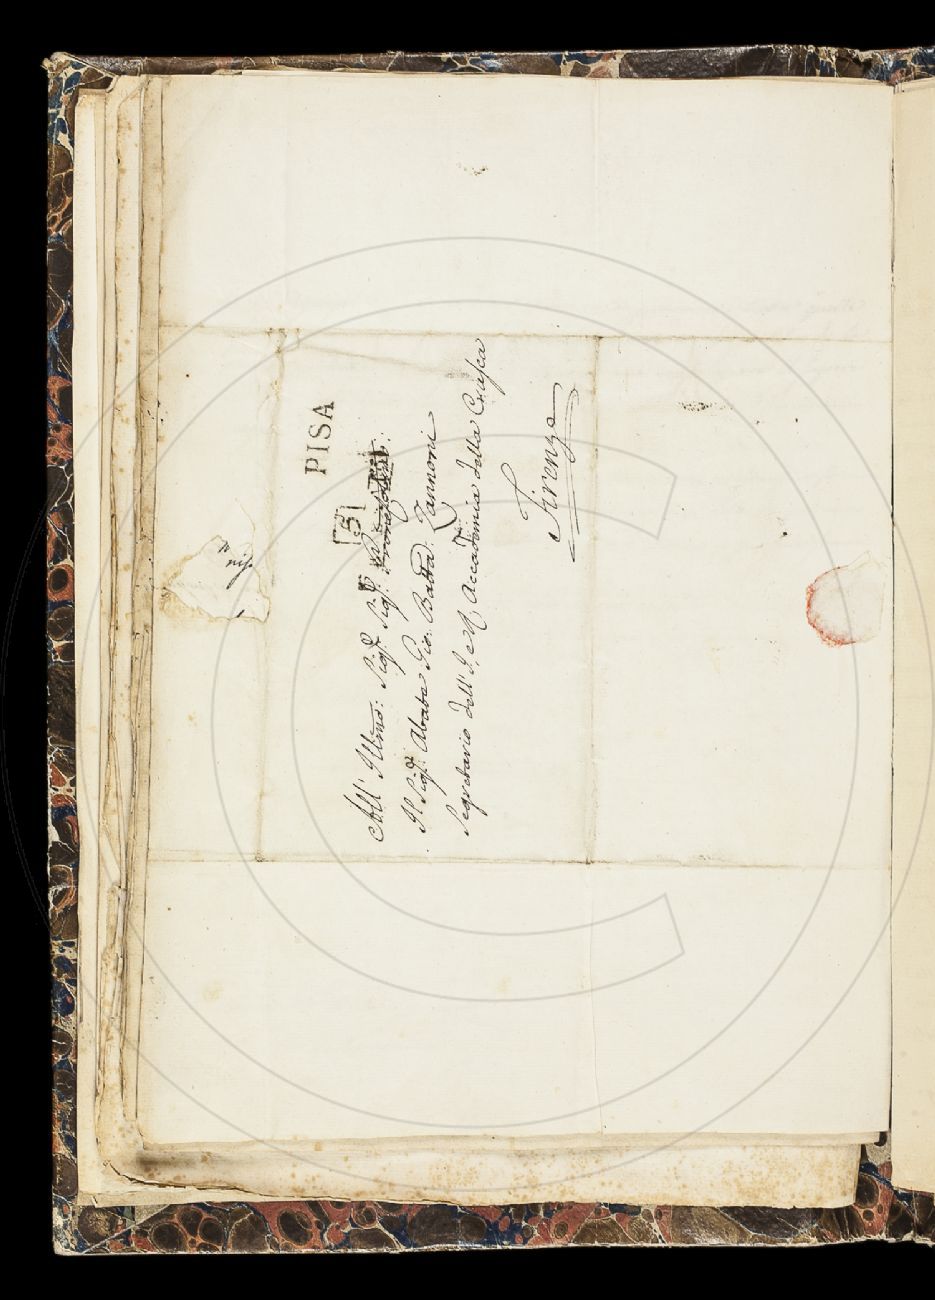 PISA
All' Illmo: Sigr. Sigr. Pron Colmo:
Il Sigr. Abate Gio: Batta: Zannoni
Segretario dell' I. e R. Accademia della Crusca
Firenze